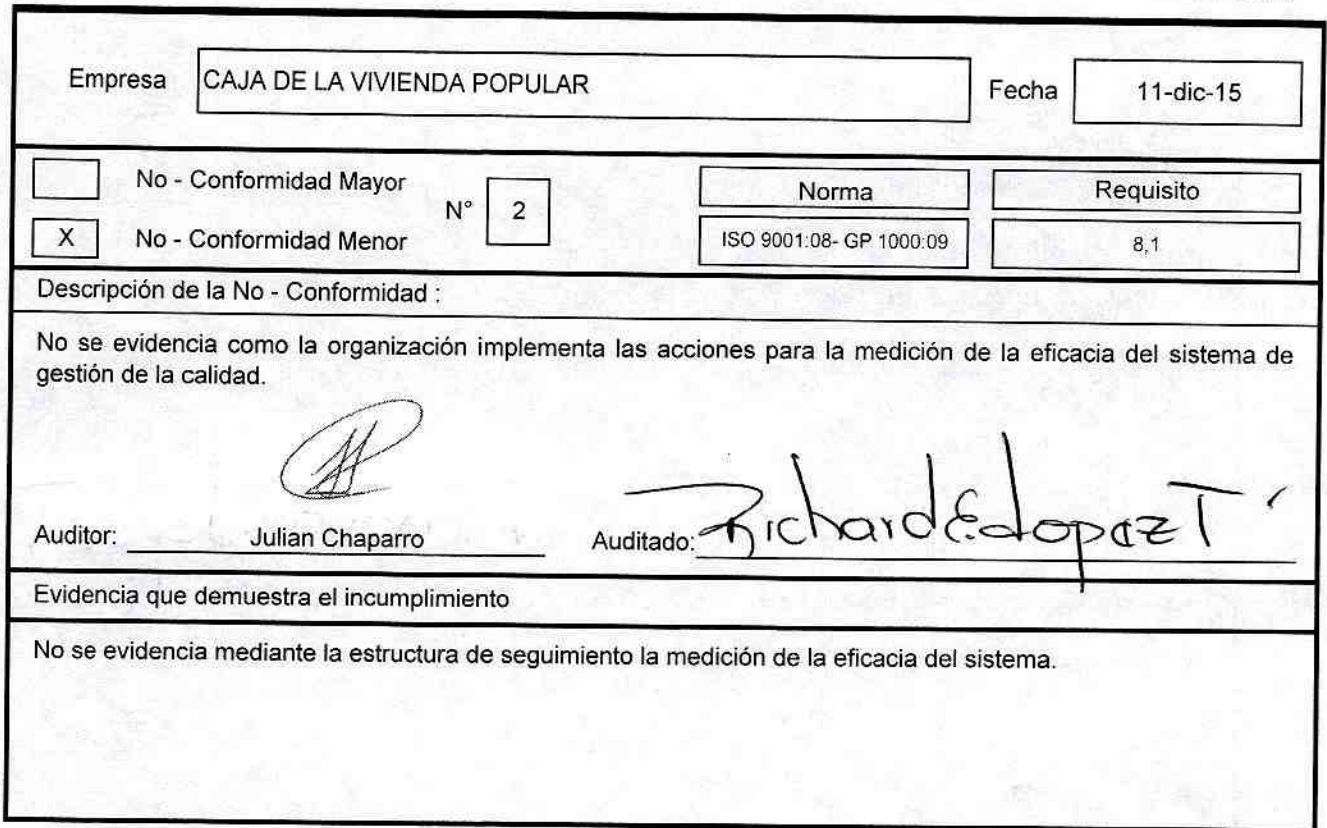 Empresa CAJA DE LA VIVIENDA POPULAR Fecha 11-dic-15
No - Conformidad Mayor
N° 2
Norma Requisito
X No - Conformidad Menor
ISO 9001:08- GP 1000:09 8,1
Descripción de la No - Conformidad :
No se evidencia como la organización implementa las acciones para la medición de la eficacia del sistema de
gestión de la calidad.
Auditor: Julian Chaparro Auditado: Richard E. Lopez T
Evidencia que demuestra el incumplimiento
No se evidencia mediante la estructura de seguimiento la medición de la eficacia del sistema.